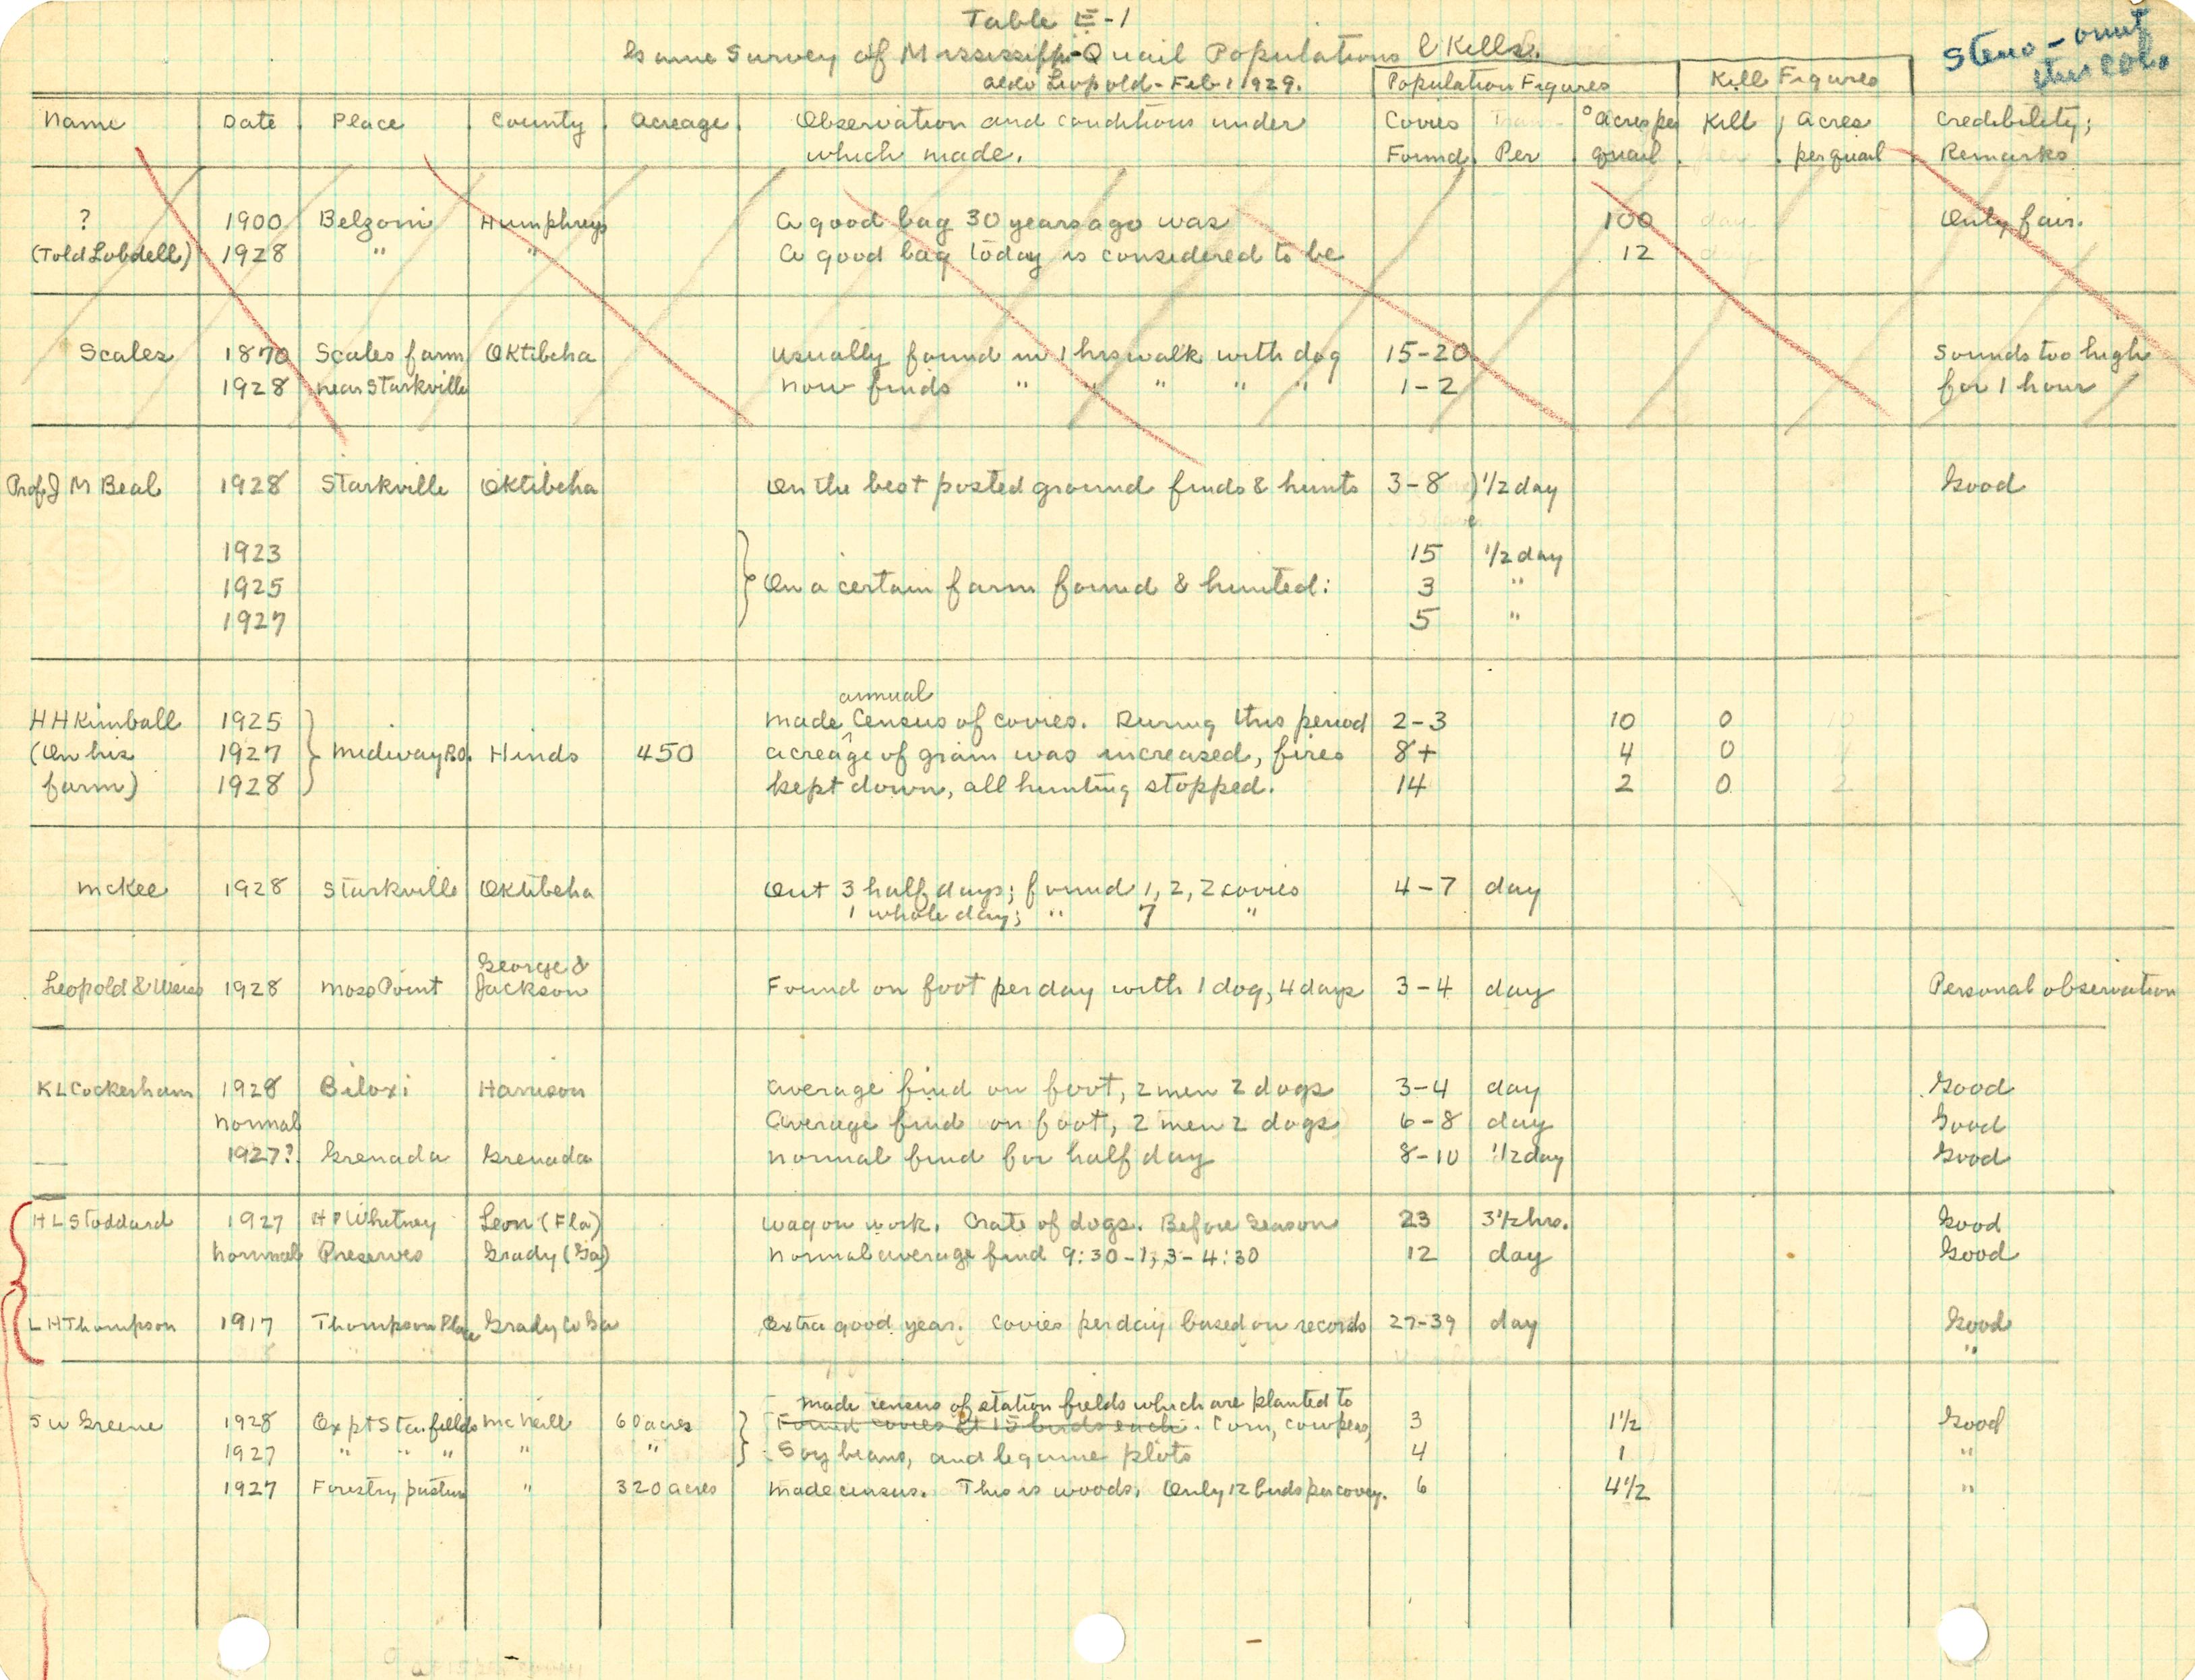 Table E-1
Game Survey of Mississippi - Quail Populations & Kills.
Aldo Leopold - Feb 1 1929.
Steno - omit
this col.
Population Figures Kill Figures
Name Date Place County Acreage Observation and conditions under Covies Acres per Kill Acres Credibility;
which made. Found Per quail per quail Remarks
? 1900 Belzoni Humphreys A good bag 30 years ago was 100 day Only fair.
(Told Lobdell) 1928 " " A good bag today is considered to be 12
Scales 1870 Scales farm Oktibeha Usually found in 1 hrs walk with dog 15-20 Sounds too high
1928 near Starkville Now finds " " " " " 1-2 for 1 hour
Prof J M Beal 1928 Starkville Oktibeha On the best posted ground finds & hunts 3-8 1/2 day Good
1923 15 1/2 day
1925 On a certain farm found & hunted: 3 "
1927 5 "
annual
H H Kimball 1925 Made census of covies. During this period 2-3 10 0
(On his 1927 Midway P.O. Hinds 450 acreage of grain was increased, fires 8+ 4 0
farm) 1928 kept down, all hunting stopped. 14 2 0 2
McKee 1928 Starkville Oktibeha Out 3 half days; found 1, 2, 2 covies 4-7 day
1 whole day; " 7 "
George &
Leopold & Weiss 1928 Moss Point Jackson Found on foot per day with 1 dog, 4 days 3-4 day Personal observation
K L Cockerham 1928 Biloxi Harrison Average find on foot, 2 men 2 dogs 3-4 day Good
Normal Average find on foot, 2 men 2 dogs 6-8 day Good
1927? Grenada Grenada Normal find for half day 8-10 1/2 day Good
H L Stoddard 1927 H P Whitney Leon (Fla) Wagon work. Crate of dogs. Before season 23 3 1/2 hrs. Good
Normal Preserves Grady (Ga) Normal average find 9:30-1, 3-4:30 12 day Good
L H Thompson 1917 Thompson Place Grady Co Ga Extra good year. Covies per day based on records 27-39 day Good
"
made census of station fields which are planted to
S W Greene 1928 Expt Sta. fields McNeill 60 acres Found covies at 15 birds each. Corn, cowpeas, 3 1 1/2 Good
1927 " " " " " Soy beans, and legume plots 4 1 "
1927 Forestry pasture " 320 acres Made census. This is woods. Only 12 birds per covey. 6 4 1/2 "